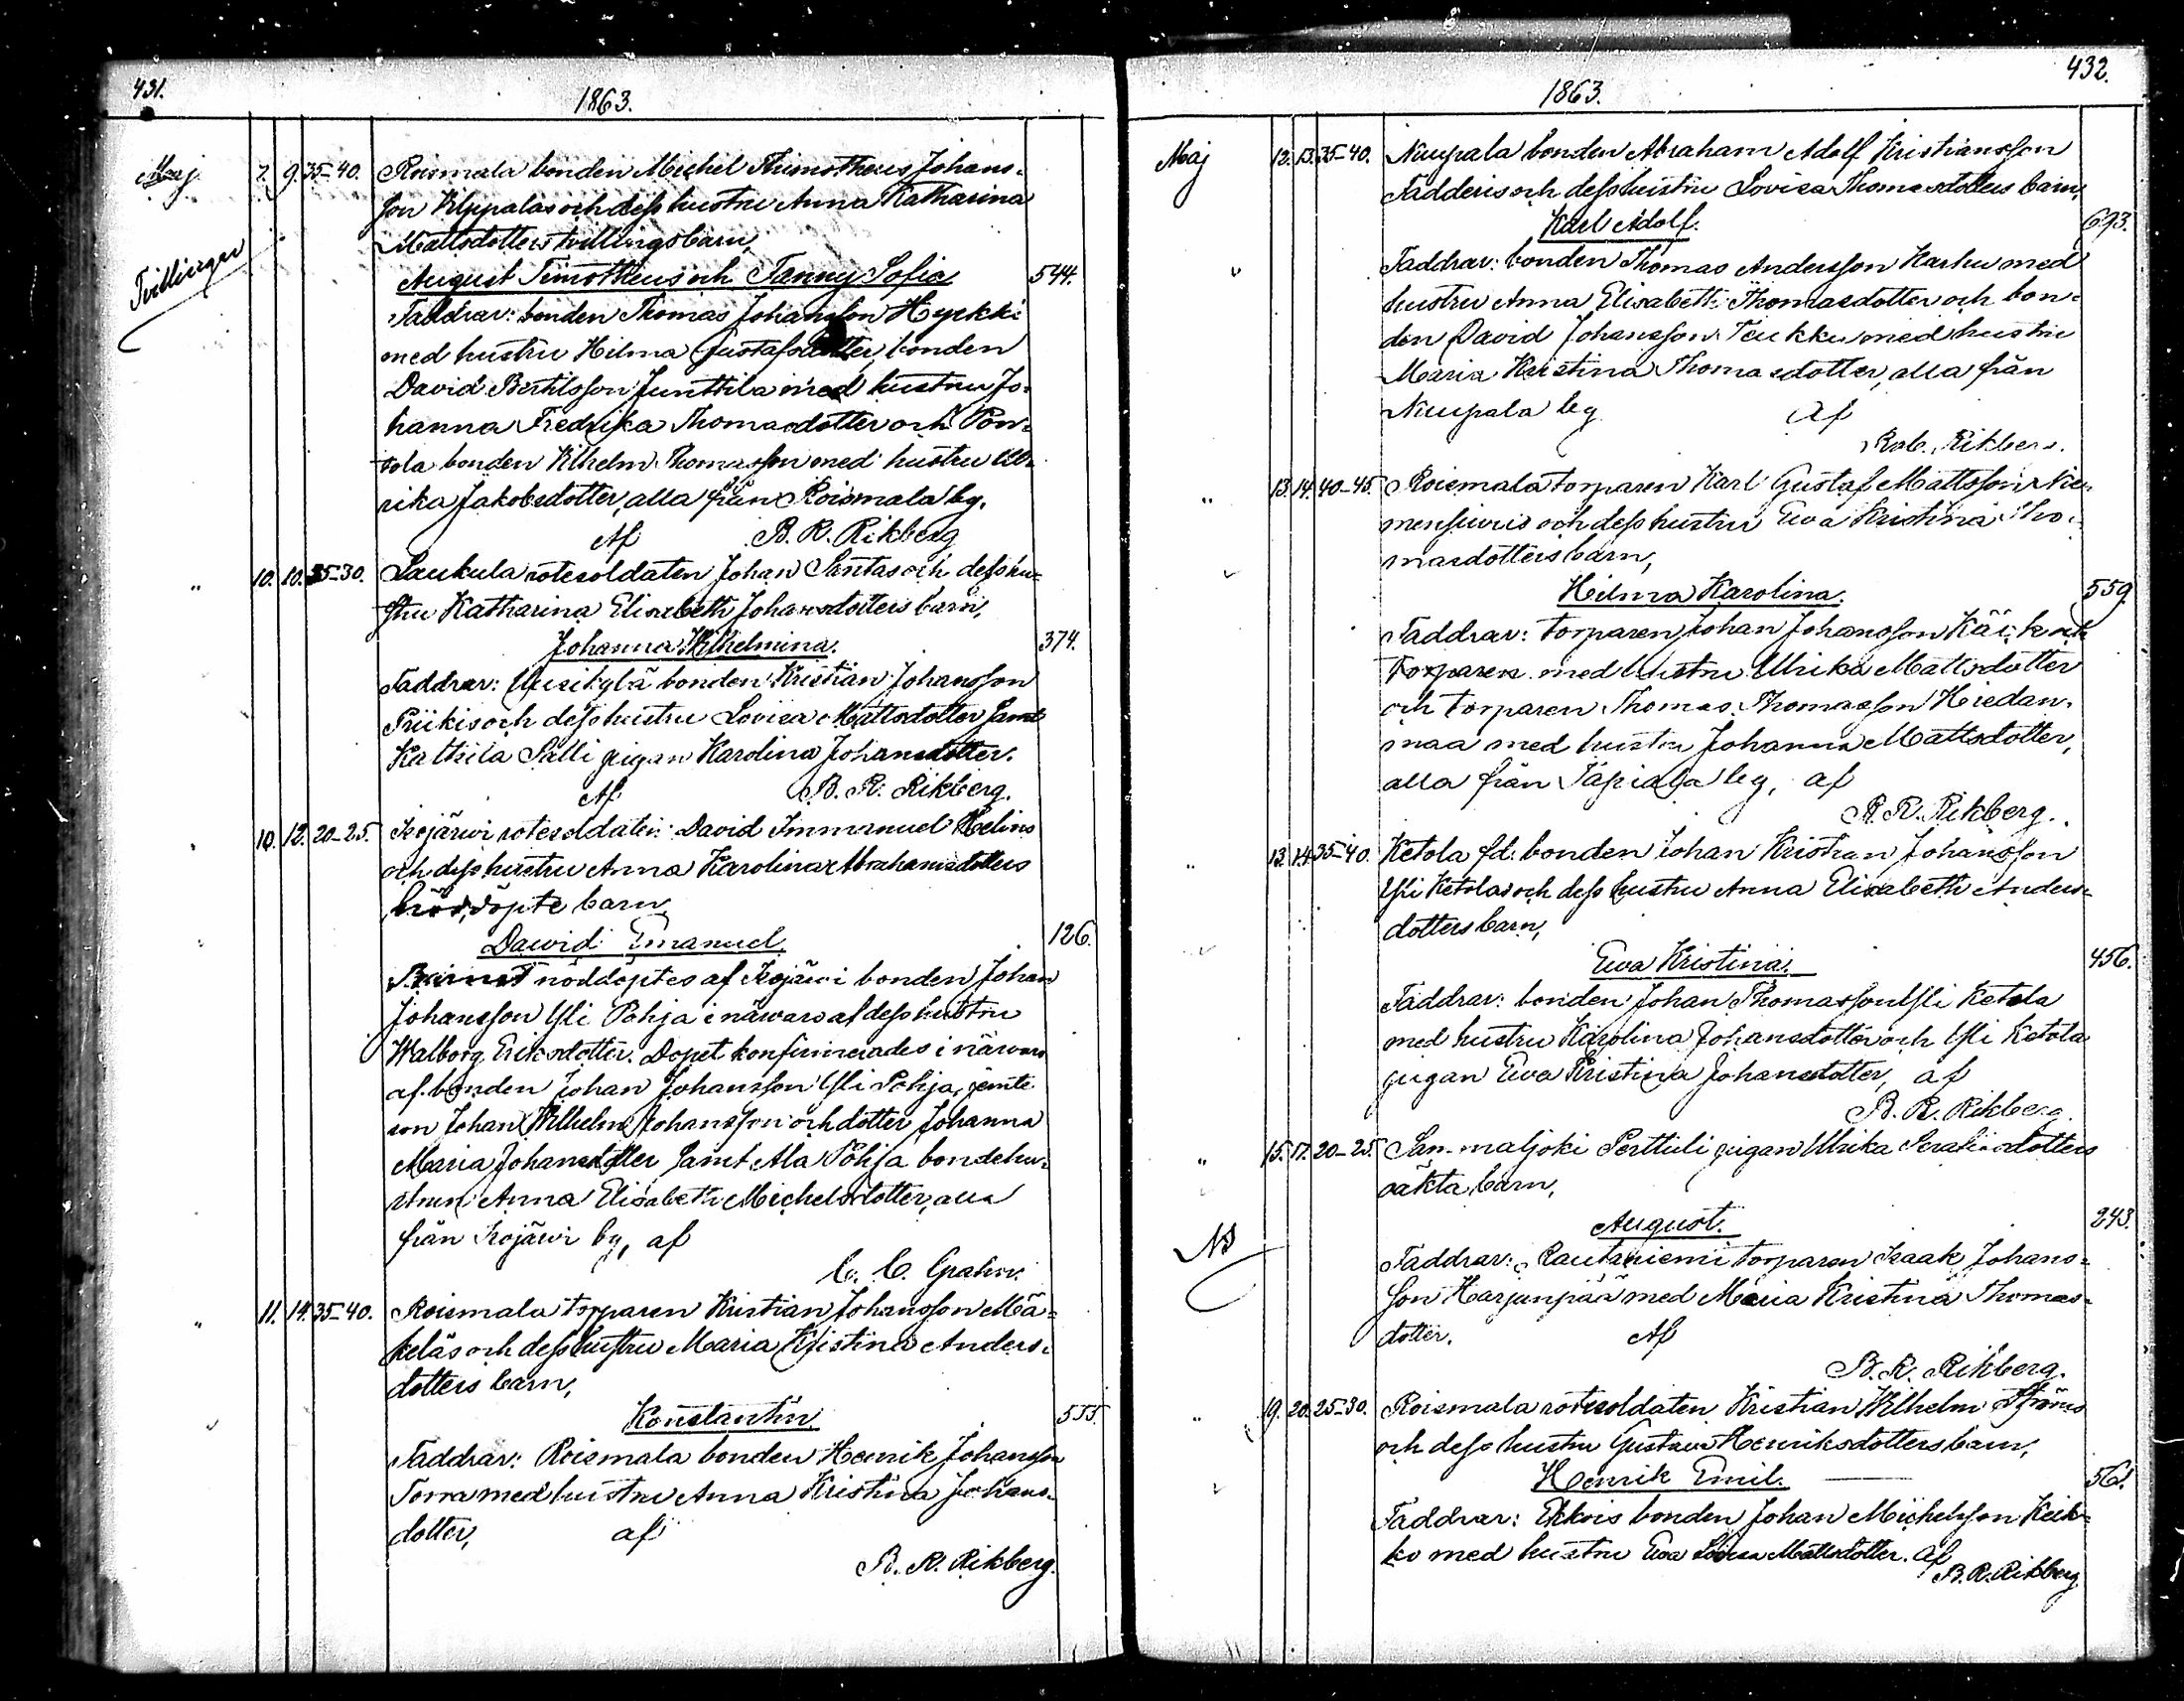 431.
1863.
Maj. 7. 9. 35-40. Roismala bonden Michel Thimotheus Johans-
son Kilppalas och dess hustru Anna Katharina
Mattsdotters tvillingsbarn,
Tvillingar
August Timotheus och Fanny Sofia 544.
Faddrar: bonden Thomas Johansson Hyrkki
med hustru Hilma Gustafsdotter, bonden
David Bertilsson Junttila med hustru Jo-
hanna Fredrika Thomasdotter och Pon-
tola bonden Wilhelm Thomasson med hustru Ul-
rika Jakobsdotter, alla från Roismala by.
Af B. R. Rikberg
" 10. 10. 25-30. Laukula rotesoldaten Johan Santas och dess hu-
stru Katharina Elisabeth Johansdotters barn,
Johanna Wilhelmina. 374.
Faddrar: Uusikylä bonden Kristian Johansson
Priikis och dess hustru Lovisa Mattsdotter samt
Kattila Sälli pigan Karolina Johansdotter.
Af B. R. Rikberg.
" 10. 12. 20-25. Isojärwi rotesoldaten David Immanuel Helins
och dess hustru Anna Karolina Abrahamsdotters
nöddöpte barn,
Dawid Emanuel. 126.
Barnet nöddöptes af Isojärwi bonden Johan
Johansson Yli Pohja i närwaro af dess hustru
Walborg Eriksdotter. Dopet konfirmerades i närwaro
af bonden Johan Johansson Yli Pohja, jemte
son Johan Wilhelm Johansson och dotter Johanna
Maria Johansdotter samt Ala Pohja bondehu-
strun Anna Elisabeth Michelsdotter, alla
från Isojärwi by, af
C. C. Grahn.
" 11. 14. 35-40. Roismala torparen Kristian Johansson Mä-
keläs och dess hustru Maria Kristina Anders-
dotters barn,
Konstantin. 555.
Faddrar: Roismala bonden Henrik Johansson
Torra med hustru Anna Kristina Johans-
dotter, af
B. R. Rikberg.
432.
1863.
Maj 12. 13. 35-40. Nuupala bonden Abraham Adolf Kristiansson
Fadderis och dess hustru Lovisa Thomasdotters barn,
Karl Adolf. 693.
Faddrar: bonden Thomas Andersson Karhu med
hustru Anna Elisabeth Thomasdotter och bon-
den David Johansson Teukku med hustru
Maria Kristina Thomasdotter, alla från
Nuupala by Af
Rob. Rikberg.
" 13. 14. 40-45. Roismala torparen Karl Gustaf Mattsson Nie-
mensuuris och dess hustru Ewa Kristina Tho-
masdotters barn,
Hilma Karolina. 559
Faddrar: torparen Johan Johansson och
torparen med hustru Ulrika Mattsdotter
och torparen Thomas Thomasson Hiedan-
maa med hustru Johanna Mattsdotter,
alla från by, af
B. R. Rikberg.
" 13. 14. 35-40. Ketola fd. bonden Johan Kristian Johansson
Yli Ketolas och dess hustru Anna Elisabeth Anders-
dotters barn,
Ewa Kristina. 456.
Faddrar: bonden Johan Thomasson Yli Ketola
med hustru Karolina Johansdotter och Yli Ketola
pigan Ewa Kristina Johansdotter, af
B. R. Rikberg.
" 15. 17. 20-25. Sammaljoki Perttuli pigan Ulrika Serafinsdotters
oäkta barn,
August. 243.
NB
Faddrar: Rautaniemi torparen Isaak Johans-
son Harjunpää med Maria Kristina Thomas-
dotter. Af
B. R. Rikberg.
" 19. 20. 25-30. Roismala rotesoldaten Kristian Wilhelm
och dess hustru Gustava Henriksdotters barn,
Henrik Emil. 561.
Faddrar: Ekkois bonden Johan Michelsson Keik-
ko med hustru Ewa Lovisa Mattsdotter. Af
B. R. Rikberg